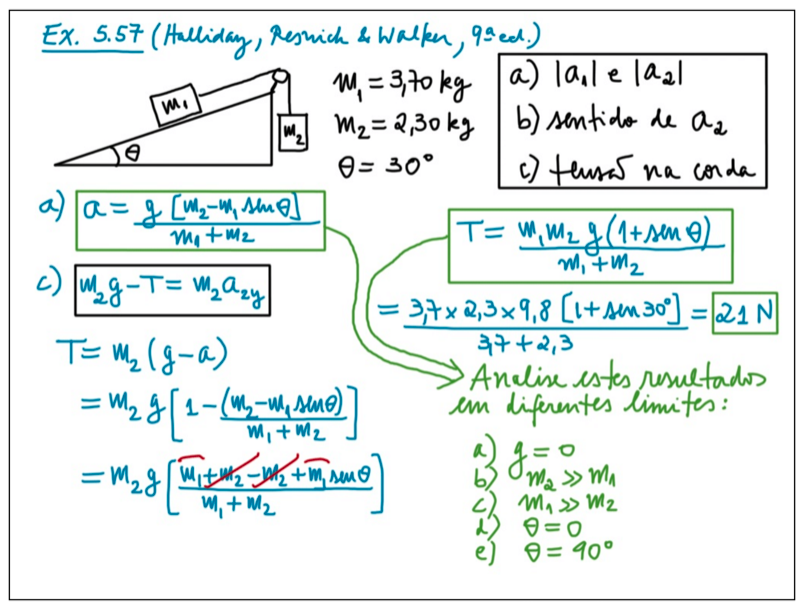 Ex. 5.57 (Halliday, Resnick & Walker, 9ª ed.)
m₁
m₂
θ
m₁ = 3,70 kg
m₂ = 2,30 kg
θ = 30°
a) |a₁| e |a₂|
b) sentido de a₂
c) tensão na corda
a) a = g [m₂ - m₁ sen θ] / m₁ + m₂
c) m₂g - T = m₂a₂y
T = m₂ (g - a)
= m₂ g [1 - (m₂ - m₁ sen θ) / m₁ + m₂]
= m₂ g [m₁ + m₂ - m₂ + m₁ sen θ / m₁ + m₂]
T = m₁ m₂ g (1 + sen θ) / m₁ + m₂
= 3,7 × 2,3 × 9,8 [1 + sen 30°] / 3,7 + 2,3 = 21 N
Analise estes resultados
em diferentes limites:
a) g = 0
b) m₂ >> m₁
c) m₁ >> m₂
d) θ = 0
e) θ = 90°